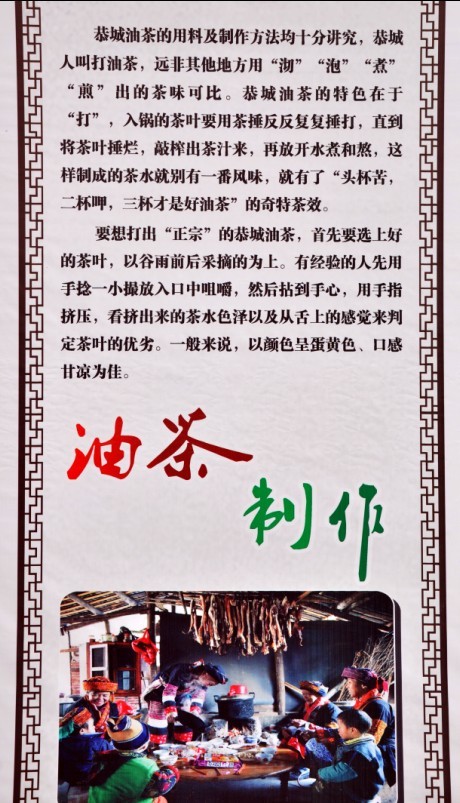 恭城油茶的用料及制作方法均十分讲究，恭城
人叫打油茶，远非其他地方用“沏”“泡”“煮”
“煎”出的茶味可比。恭城油茶的特色在于
“打”，入锅的茶叶要用茶捶反反复复捶打，直到
将茶叶捶烂，敲榨出茶汁来，再放开水煮和熬，这
样制成的茶水就别有一番风味，就有了“头杯苦，
二杯呷，三杯才是好油茶”的奇特茶效。
要想打出“正宗”的恭城油茶，首先要选上好
的茶叶，以谷雨前后采摘的为上。有经验的人先用
手捻一小撮放入口中咀嚼，然后拈到手心，用手指
挤压，看挤出来的茶水色泽以及从舌上的感觉来判
定茶叶的优劣。一般来说，以颜色呈蛋黄色、口感
甘凉为佳。
油茶
制作